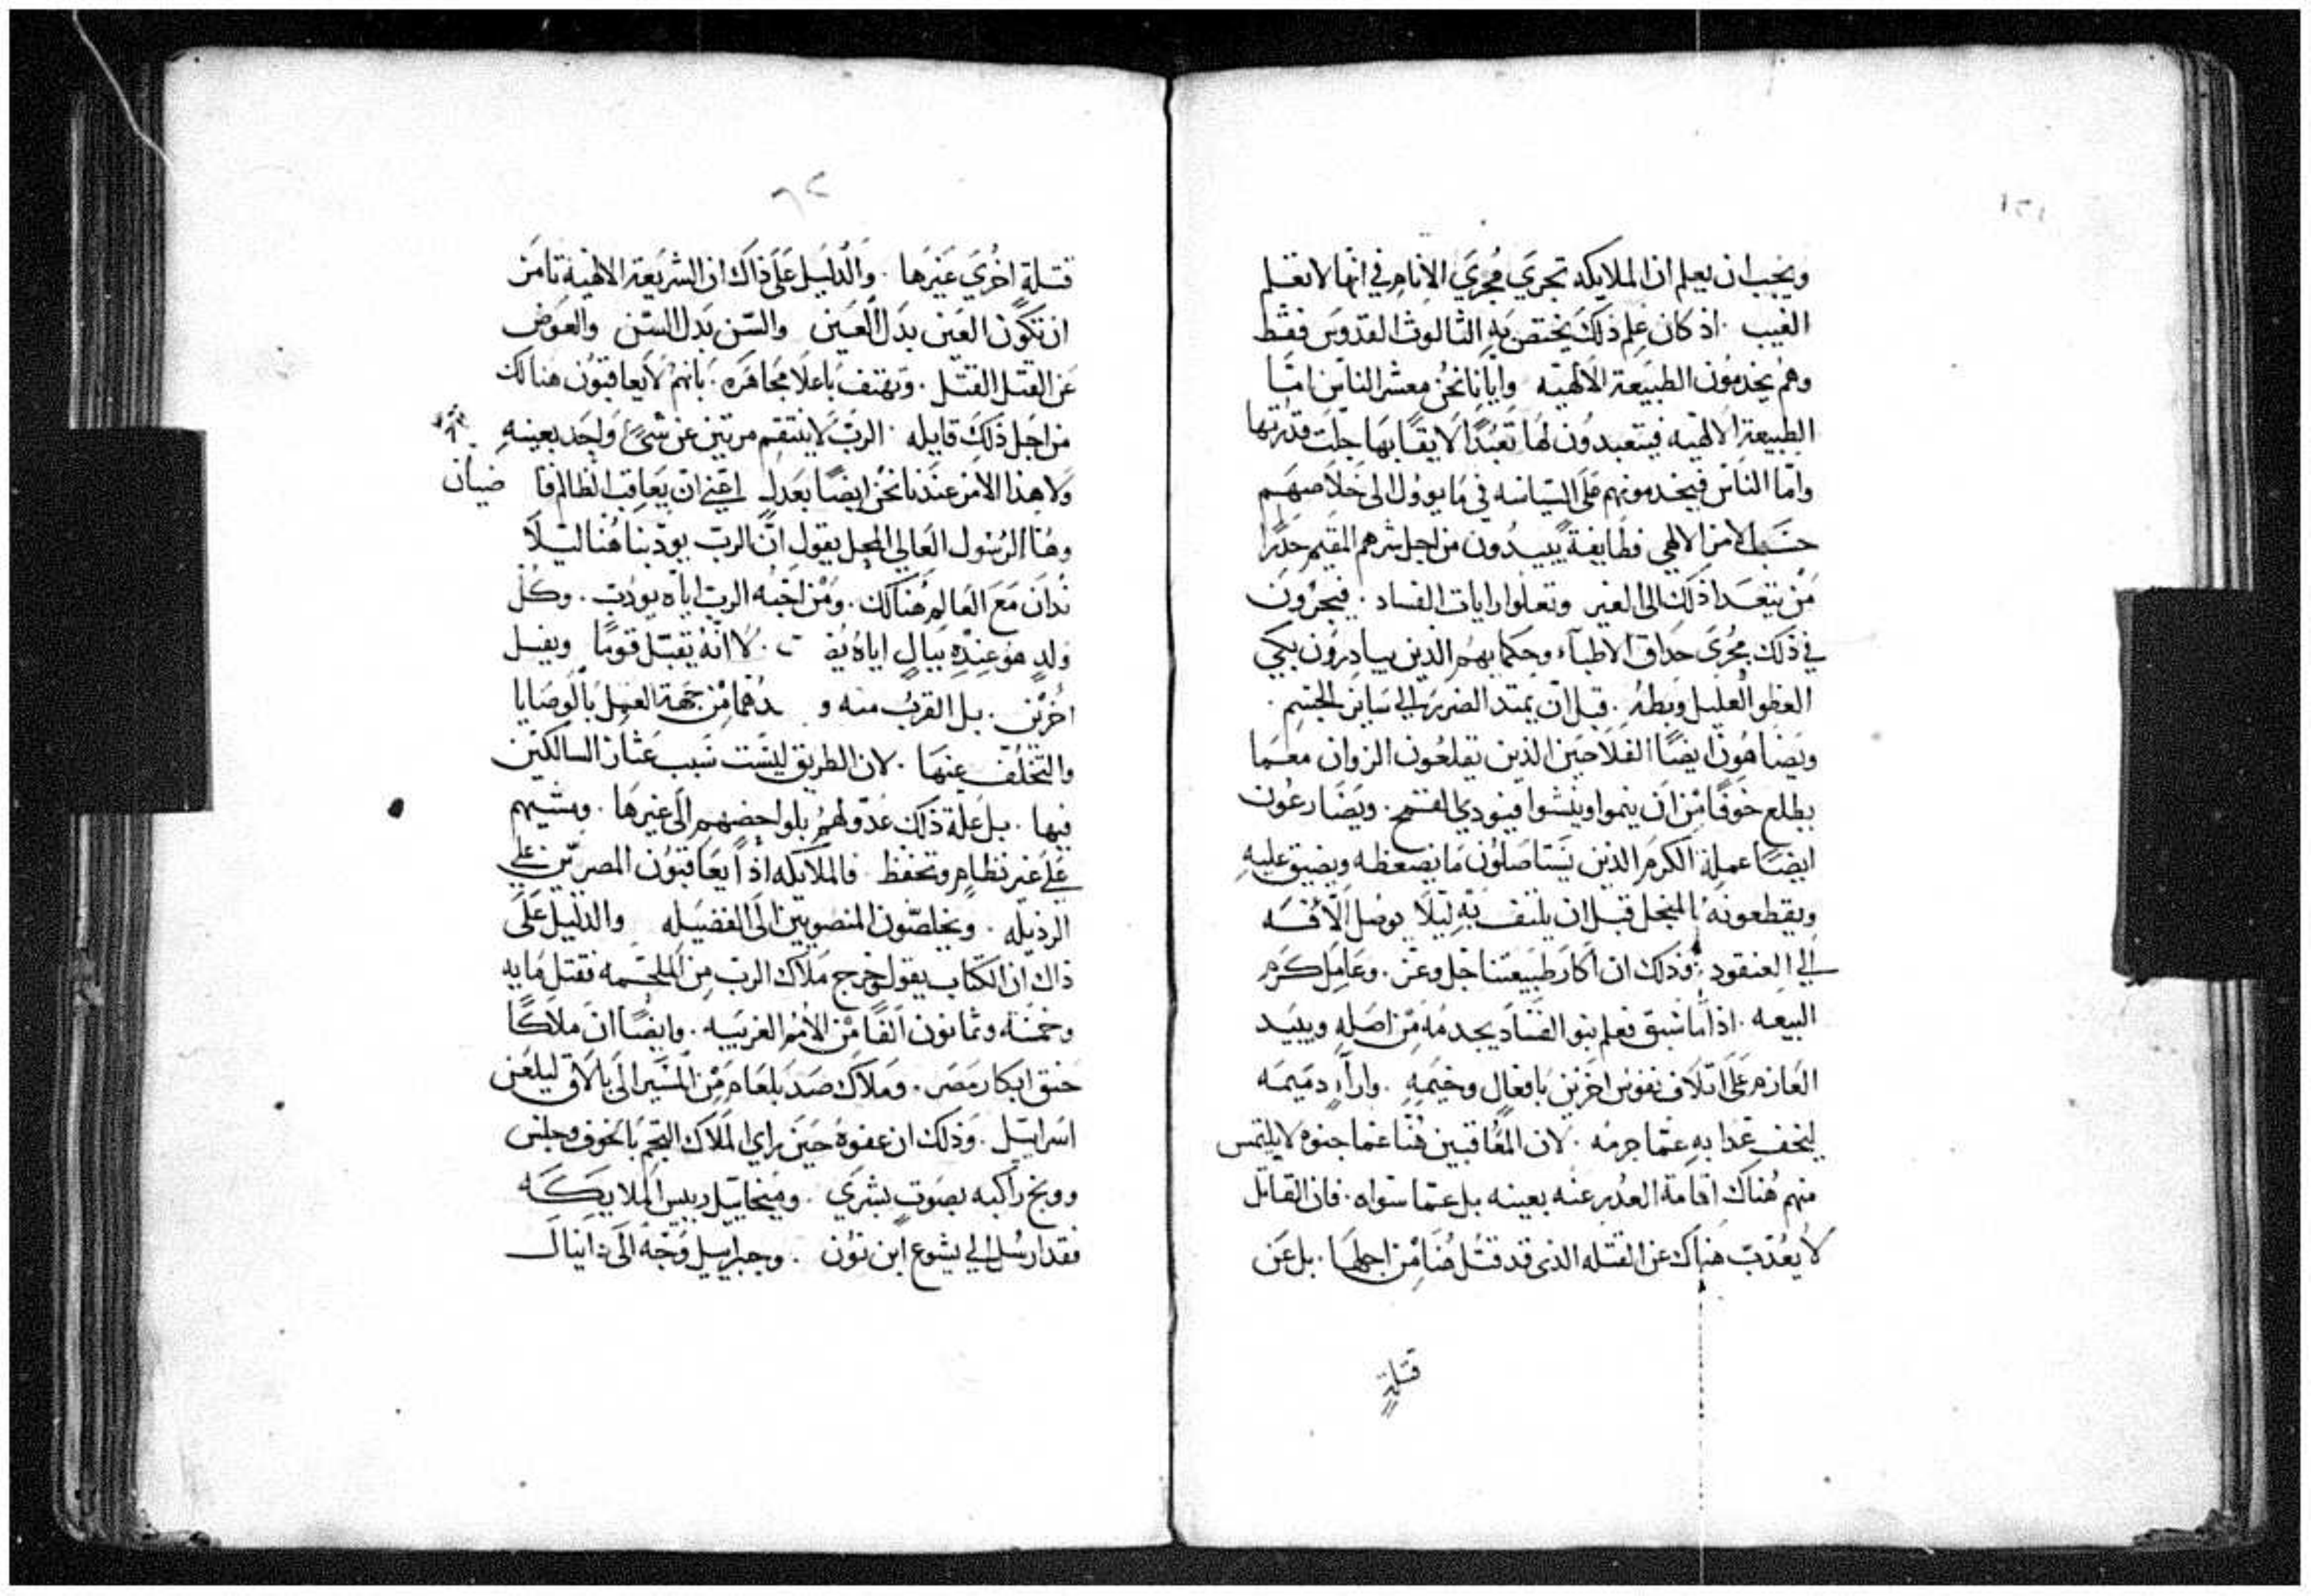 ١٢١
ويجب ان يعلم ان الملايكه تجري مُجرَي الانام في انها لا تعلم
الغيب . اذ كان علم ذلك يختص به الثالوث القدوس فقط
وهم يخدمون الطبيعة الالهيه وايانا نحن معشر الناس امّا
الطبيعة الالهيه فيتعبدون لها تعبدًا لايقًا بها جلت قدرتها
وامّا الناس فيخدمونهم على السياسه في ما يوول الى خلاصهم
حسب الامر الالهي فطايفةً يبيدون من اجل شرهم المقيم حذرًا
مَن يتعدا ذلك الى الغير وتعلوا رايات الفساد . فيجرون
في ذلك مجُرى حداق الاطبآء وحكمايهم الذين يبادرون بكي
العظو العليل وبطهِ . قبل ان يمتد الضرر الي ساير الجسم .
ويضاهون ايضًا الفلاحين الذين يقلعون الزوان معما
يطلع خوفًا من ان ينموا وينشوا فيودي القمح . ويضارعون
ايضًا عملة الكرم الذين يستاصلون ما يضعظه ويضيق عليهِ
ويقطعونه بالمنجل قبل ان يلتف به ليلا يوصل الآفه
الي العنقود . وذلك ان اكار طبيعتنا جل وعز . وعامل كرم
البيعه . اذا ما سبق فعلم بنو الفساد يجدمه من اصله ويبيد
العازم على اتلاف نفوس اخرين بافعال وخيمه . واراءٍ دميمه
ليخف عدابه عمّا جرمه . لان المعاقبين هُنا عما جنوه لا يلتمس
منهم هُناك اقامة العدر عنه بعينه بل عمّا سواه . فان القاتل
لا يعُذب هناك عن القتله الذي قد قتُل هُنا من اجلها . بل عن
قتلةٍ
٦٢
قتلة اخُري غيرها . والدليل على ذاك ان الشريعة الالهية تامر
ان تكون العين بدل العين والسّن بدل السّن والعوض
عن القتل القتل . وتهتف باعلا مجاهره . بانهم لا يعاقبون هنالك
من اجل ذلك قايله . الربّ لا ينتقم مرتين عن شيءٍ واحد بعينهِ
ولا هذا الامر عندنا نحن ايضًا بعدل اعني ان يعاقب الظالم قا ضيان
وهُنا الرسُول العالي المحل يقول انّ الرب يودّبنا هُنا ليلا
ندان مع العالم هُنالك . ومَن احبّه الرب اياه يودب . وكُل
ولدٍ هو عنده ببالٍ اياه يُض ب . لا انهُ يقبل قومًا ويفسل
اخُرين . بل القرب منه و دُهما من جهة العمل بالوصايا
والتخلف عنها . لان الطريق ليست سبب عثار السالكين
فيها . بل علة ذلك عدولهم بلواحضهم الى غيرها . ومشيهم
على غير نظام وتحفظ . فالملايكه اذًا يعاقبون المصرّين علي
الرذيله . ويخلصّون المنصويين الى الفضيله والدليل على
ذاك ان الكتاب يقول خرج ملاك الرب من الملحمه فقتل مايه
وخمسه وثمانون الفًا من الامُم الغريبيه . وايضًا ان ملاكًا
خنق ابكار مصر . وملاك صد بلعام من المسير الى بالاق ليلعن
اسراييل . وذلك ان عفوهُ حين راي الملاك التجم بالخوف وجلس
ووبخ راكبه بصوت بشري . وميخاييل رييس الملايكه
فقد ارسُل الي يشوع ابن نون . وجبراييل وُجّه الى دانيال